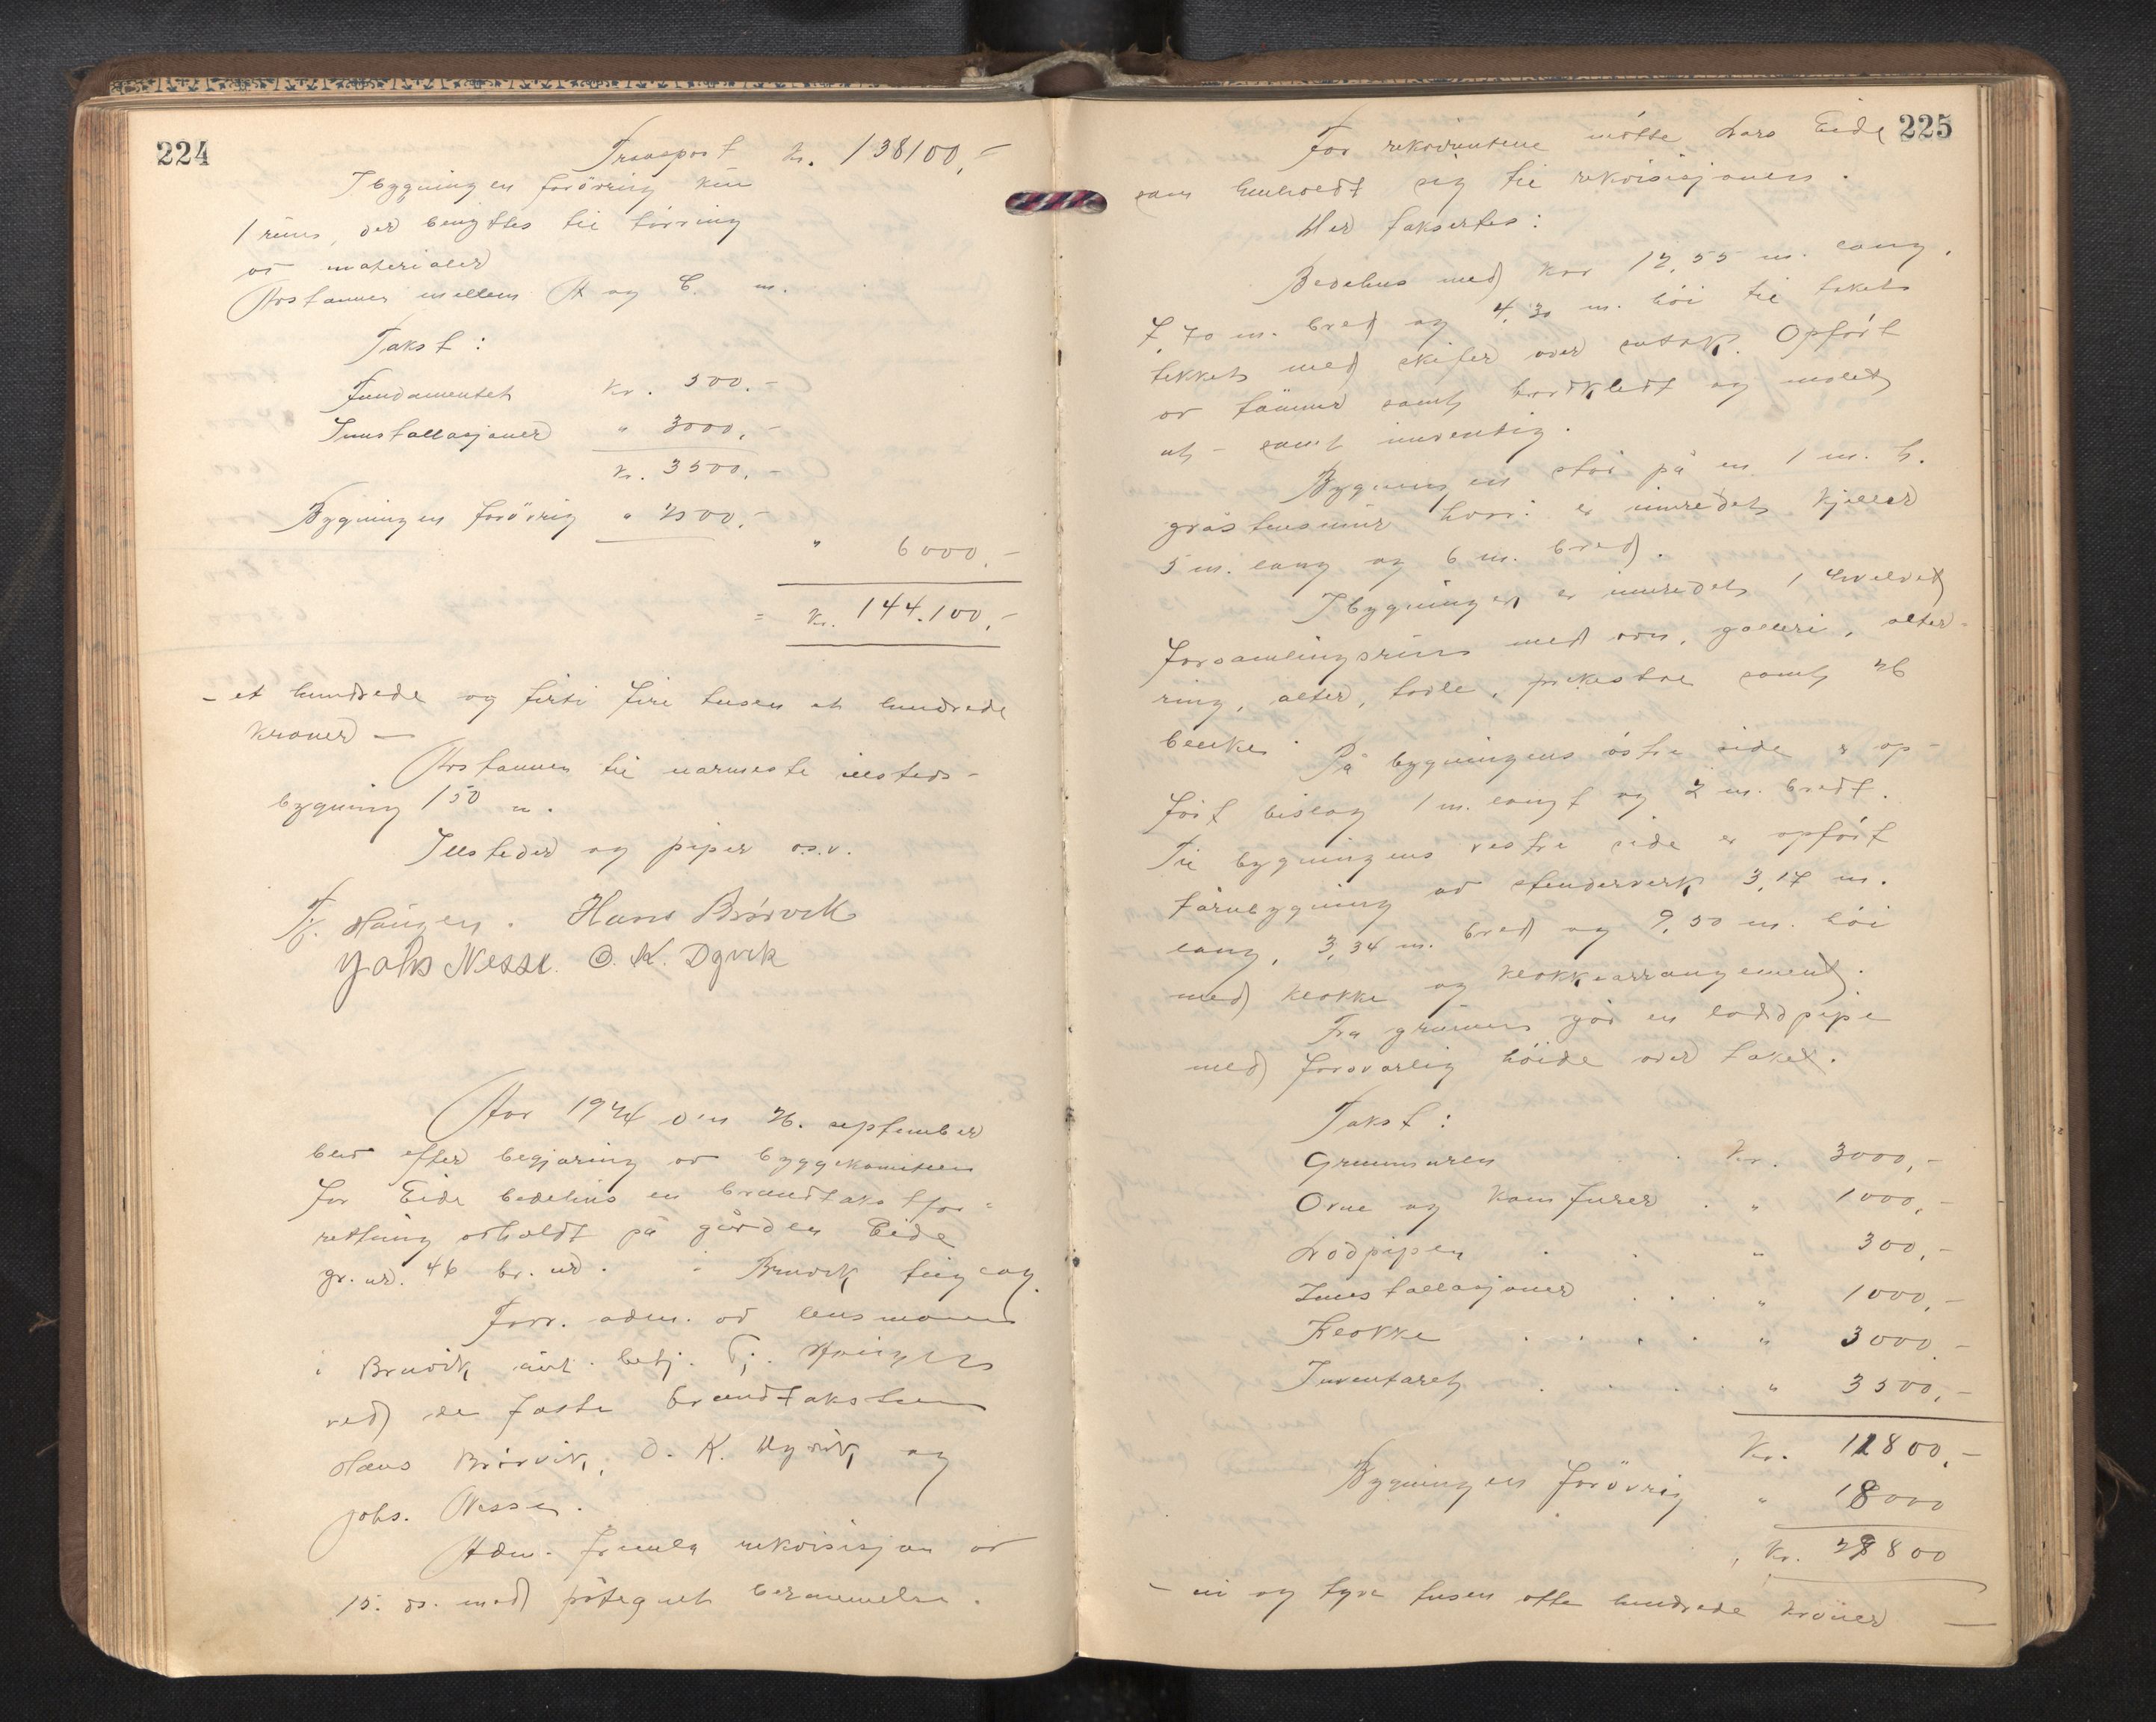 224
Transport kr. 138100,-
I bygningen forövrig kun
1 rum, der benyttes til törring
av materialer
Avstannen mellem A og C. m.
Takst:
Fundamentet kr. 500.-
Innstallasjoner " 3000,-
kr. 3500,-
Bygningen forövrig " 2500,-
" 6000,-
= kr. 144.100,-
- et hundrede og firti fire tusen et hundrede
kroner -
Avstannen til nærmeste illsteds-
bygning 150 m.
Illsteder og piper o.s.v.
Tj. Haugen. Hans Brørvik
Johs Nesse. O. K. Dyvik
Aar 1924 den 26. september
blev efter begjæring av byggekomiteen
for Eide bedehus en brandtakstfor-
retning avholdt på gården Eide
gr. nr. 46 br. nr. i Bruvik tinglag.
Forr. adm. av lensmannen
i Bruvik aut. betj. Tj. Haugen
ved de faste brandtakstmenn
Hans Brørvik, O. K. Dyvik og
Johs. Nesse.
Adm. fremla rekvisisjon av
15. ds. med påtegnet berammelse.
225
For rekvirentene mötte Lars Eide
som henholdt sig til rekvisisjonen.
Her taksertes:
Bedehus med kor 12,55 m. lang,
7,70 m. bred og 4,30 m. höi til taket
tekket med skifer over sutak. Opfört
av tömmer samt bordkledt og malet
ut- samt innvendig.
Bygningen står på en 1 m. h.
gråstensmur hvori er innredet kjeller
5 m. lang og 6 m. bred.
I bygningen er innredet 1 hvelvet
forsamlingsrum med ovn, galleri, alter-
ring, alter, tavle, prekestol samt 26
benker.
På bygningens östre side er op-
fört bislag 1 m. langt og 2 m. bredt.
Til bygningens vestre side er opfört
tårnbygning av stenderverk 3,17 m.
lang, 3,34 m. bred og 9,50 m. höi
med klokke og klokkearrangement.
Fra grunnen går en loddpipe
med forsvarlig höide over taket.
Takst:
Grunnmuren . . kr. 3000,-
Ovne og komfurer . " 1000,-
Lodpipen . . " 300,-
Innstallasjoner . . . " 1000,-
Klokke . . . . " 3000,-
Inventaret . . . . " 3500,-
Kr. 11800,-
Bygningen forövrig " 18000
kr. 29800
- ni og tyve tusen otte hundrede kroner -